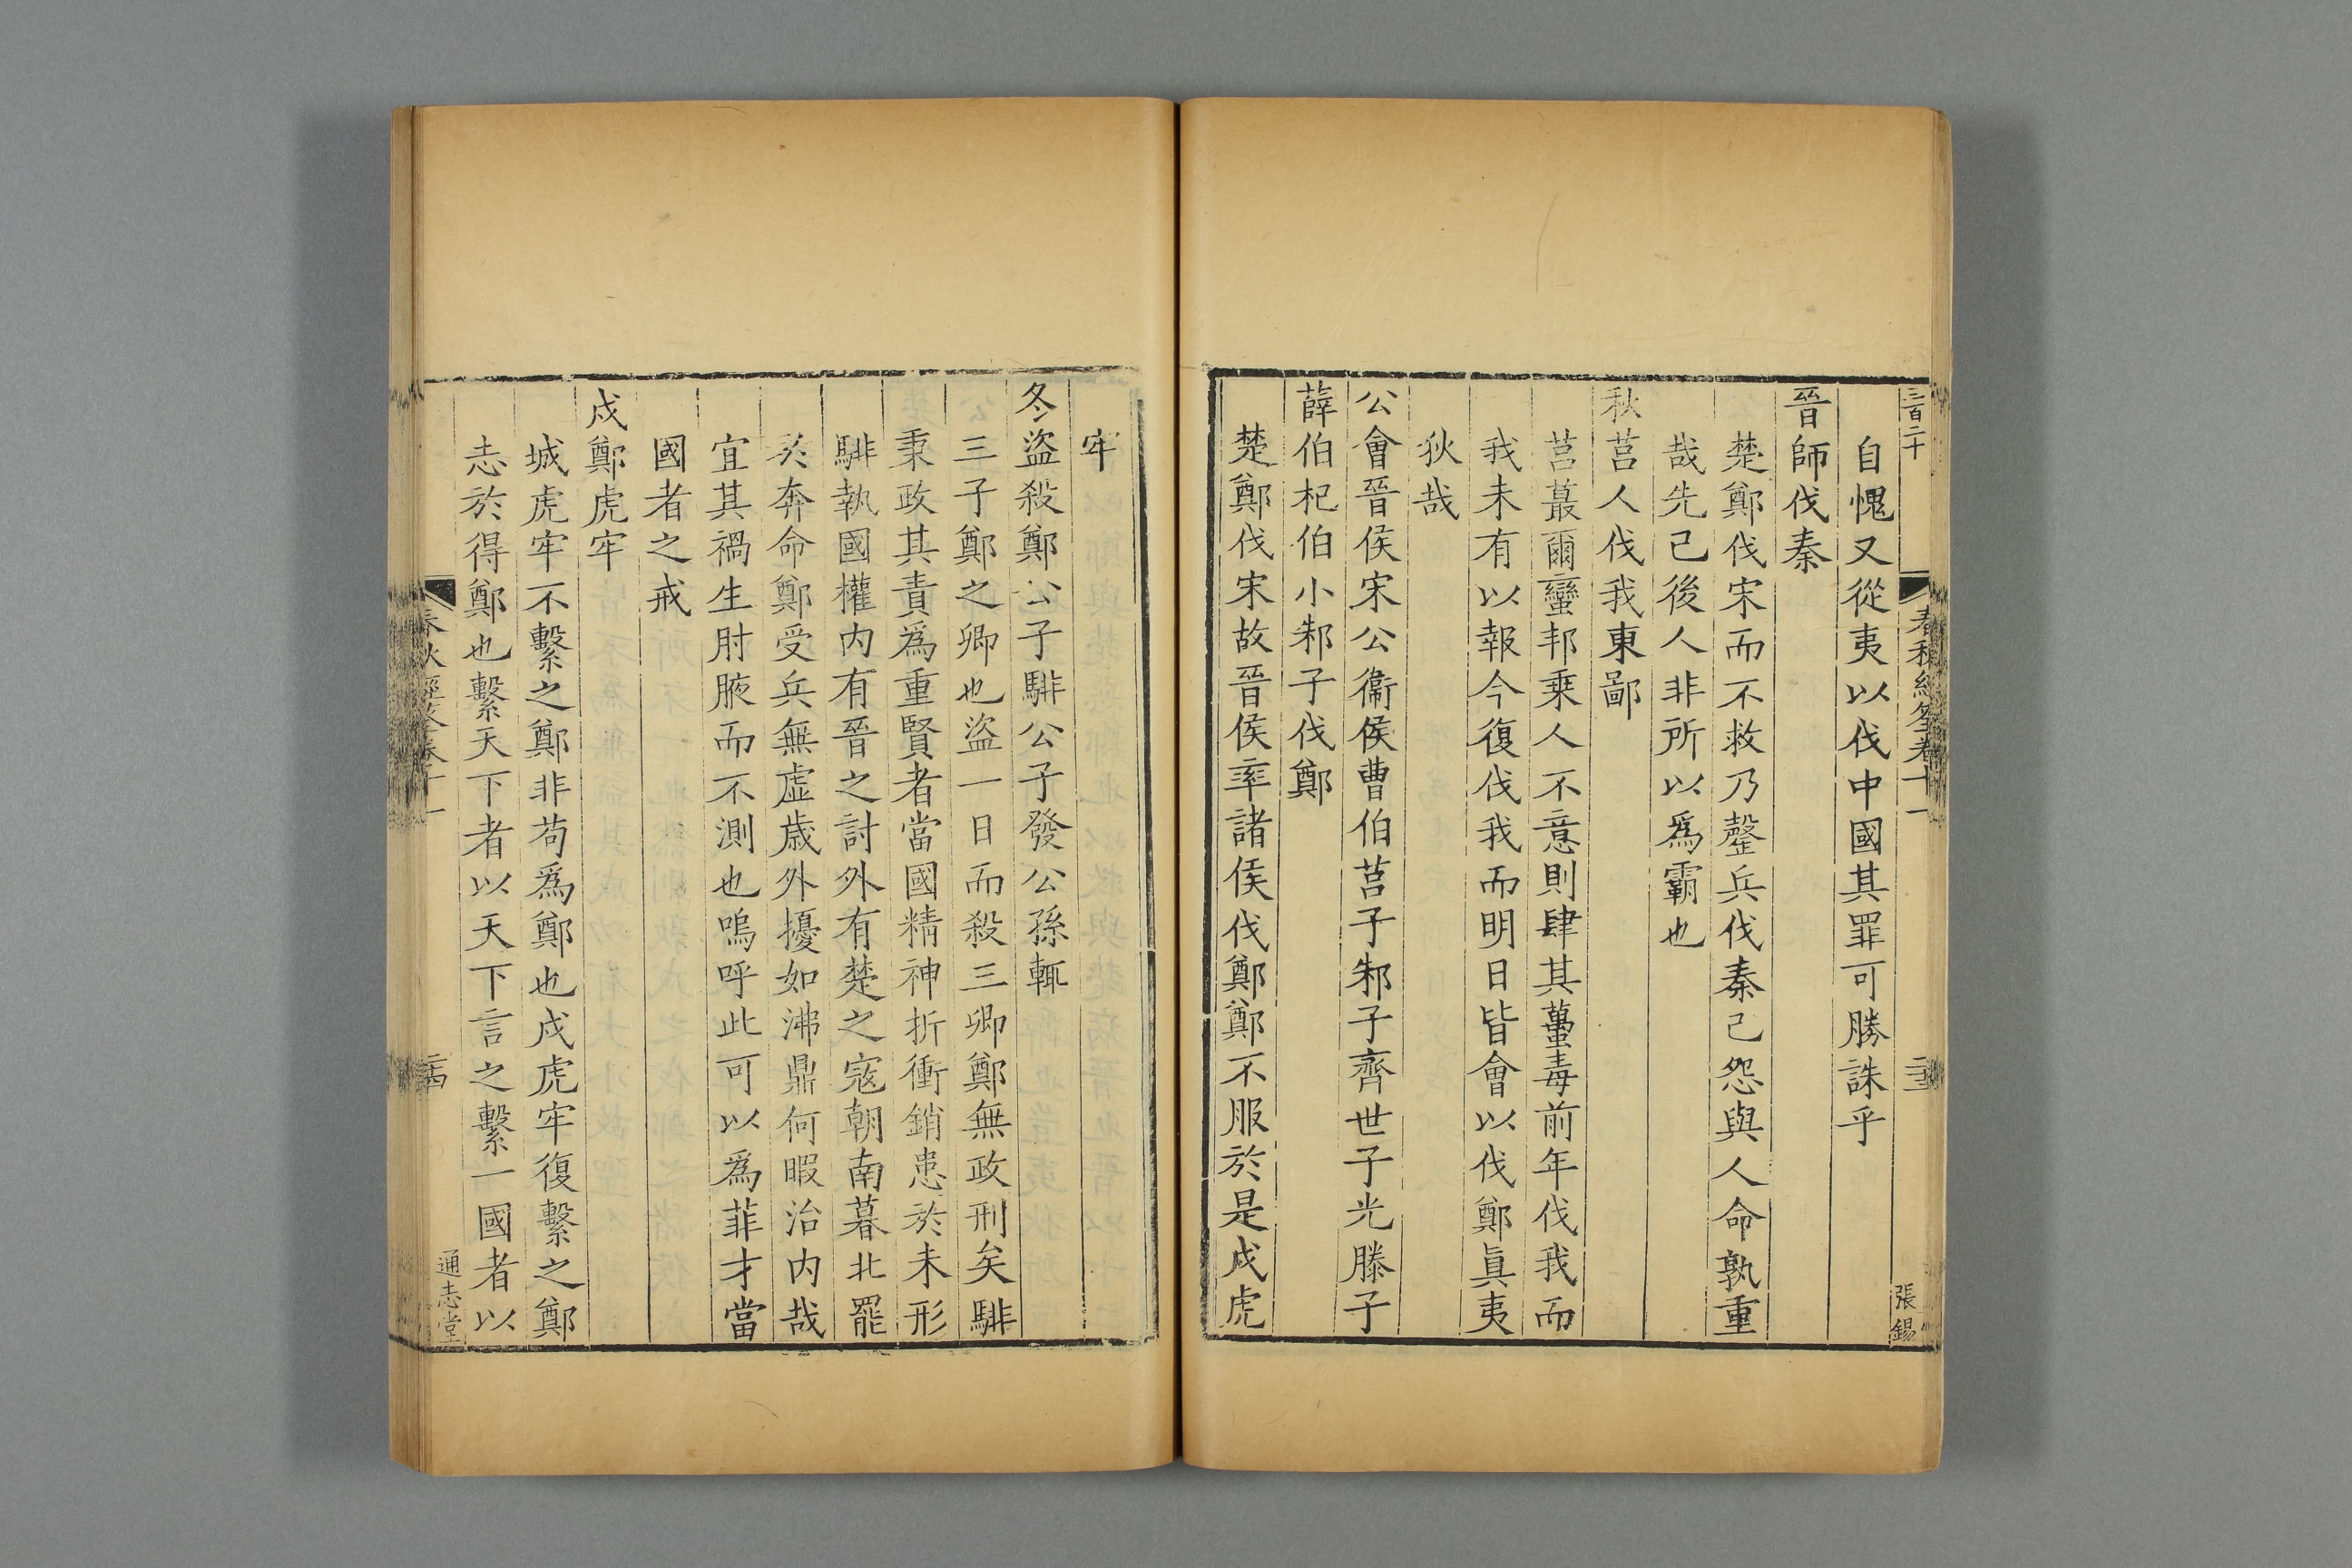 三百二十
春秋經筌卷十一
二十三
張錫
自愧又從夷以伐中國其罪可勝誅乎
晉師伐秦
楚鄭伐宋而不救乃罄兵伐秦己怨與人命孰重
哉先己後人非所以爲霸也
秋莒人伐我東鄙
莒蕞爾蠻邦乗人不意則肆其蠆毒前年伐我而
我未有以報今復伐我而明日皆會以伐鄭眞夷
狄哉
公會晉侯宋公衞侯曹伯莒子邾子齊世子光滕子
薛伯杞伯小邾子伐鄭
楚鄭伐宋故晉侯率諸侯伐鄭鄭不服於是戍虎
牢
冬盜殺鄭公子騑公子發公孫輒
三子鄭之卿也盜一日而殺三卿鄭無政刑矣騑
秉政其責爲重賢者當國精神折衝銷患於未形
騑執國權内有晉之討外有楚之宼朝南暮北罷
於奔命鄭受兵無虛歲外擾如沸鼎何暇治内哉
宜其禍生肘腋而不測也嗚呼此可以爲菲才當
國者之戒
戍鄭虎牢
城虎牢不繫之鄭非苟爲鄭也戍虎牢復繫之鄭
志於得鄭也繫天下者以天下言之繫一國者以
春秋經筌卷十一
二十四
通志堂